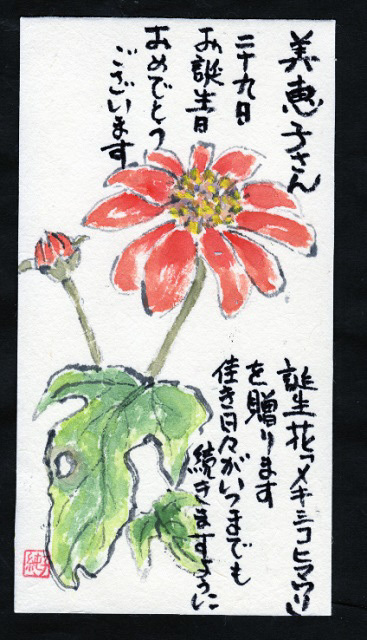 美恵子さん
二十九日
お誕生日
おめでとう
ございます
誕生花「メキシコヒマワリ」
を贈ります
佳き日々がいつまでも
続きますように